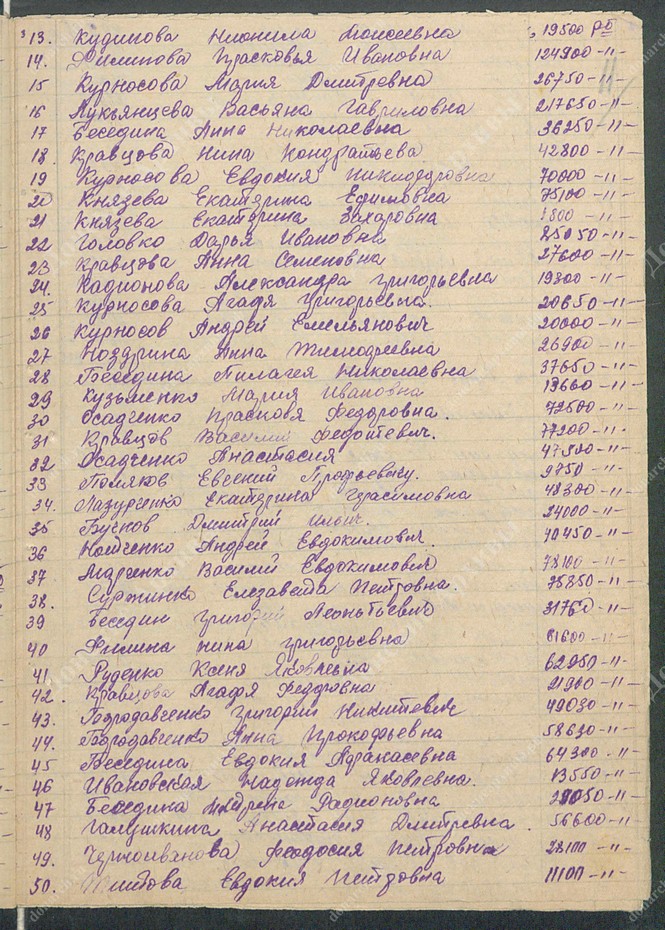 13. Кудинова Неонила Моисеевна 19500 рб
14. Филипова Прасковья Ивановна 124900 -"-
15 Курносова Мария Дмитревна 26750 -"-
16 Лукьянцева Васьяна Гавриловна 217650 -"-
17 Беседина Анна Николаевна 36250 -"-
18. Кравцова Нина Кондратьева 42800 -"-
19 Курносова Евдокия Никидоровна 70000 -"-
20 Князева Екатерина Ефимовна 75100 -"-
21 Князева Екатерина Захаровна 1800 -"-
22 Головко Дарья Ивановна 25050 -"-
23 Кравцова Анна Семеновна 27600 -"-
24. Кадионова Александра Григорьевна 19300 -"-
25 Курносова Агафя Григорьевна. 20650 -"-
26 Курносов Андрей Емельянович 20000 -"-
27 Ноздрина Анна Тимофеевна 26900 -"-
28 Беседина Пилагея Николаевна 37650 -"-
29 Кузьменко Мария Ивановна 19660 -"-
30 Осадченко Прасковя Федоровна. 72500 -"-
31 Кравцов Василий Федотевич. 77200 -"-
32 Осадченко Анастасия 47900 -"-
33 Поляков Евгений 9750 -"-
34. Лазурченко Екатерина Герасимовна 48300 -"-
35 Бучнов Дмитрий Ильич. 24000 -"-
36 Андрей Евдокимович. 40450 -"-
37 Марченко Василий Евдокимович 78100 -"-
38. Елезавета Петровна. 25850 -"-
39 Беседин Григорий Леонтьевич 31760 -"-
40 Филина Нина Григорьевна 81600 -"-
41 Руденко Ксеня Яковлевна 62250 -"-
42. Кравцова Агафя Федоровна 21900 -"-
43. Подродавченко Григорий Никитевич 49030 -"-
44. Подродавченко Анна Прокофьевна 58630 -"-
45 Беседина Евдокия Афанасевна 64300 -"-
46 Ивановская Надежда Яковлевна. 13550 -"-
47 Беседина Радионовна -"-
48 Галушкина Анастасия Дмитревна. 56600 -"-
49. Черноиванова Феодосия Петровна 28100 -"-
50. Титова Евдокия Петровна 11100 -"-